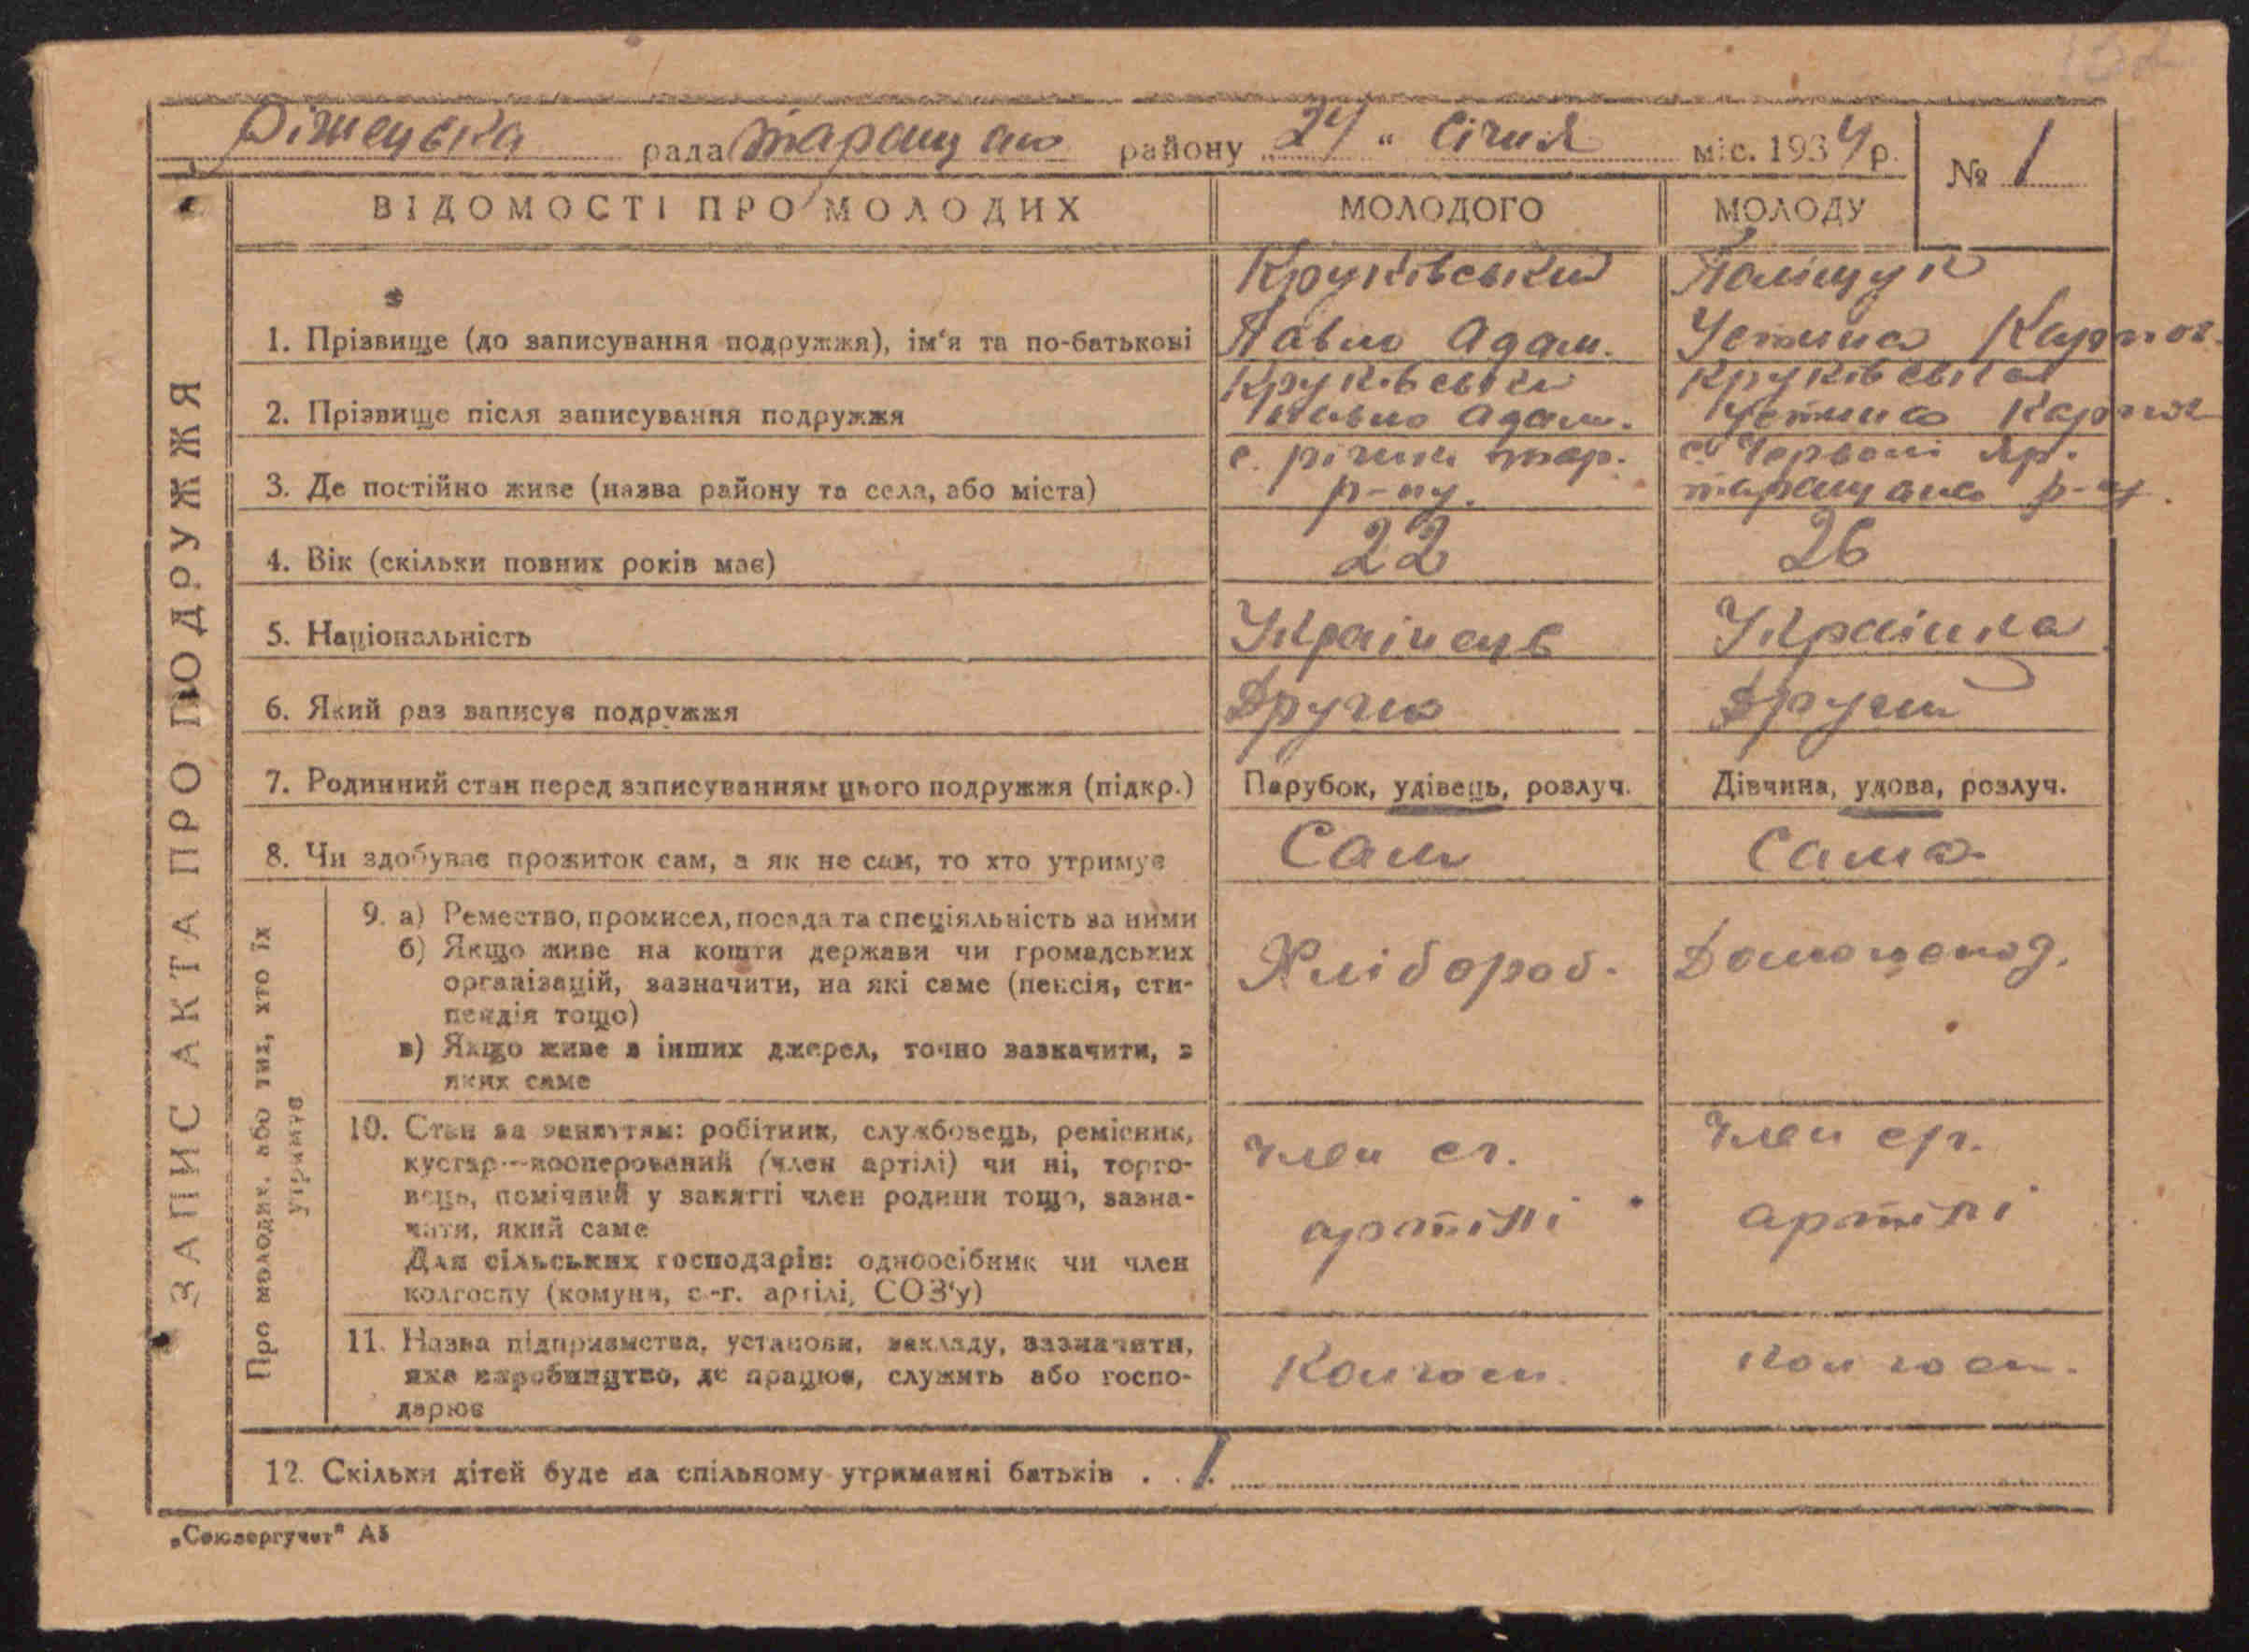 рада Таращан району 24 " січня міс. 1934 р.
№ 1
ЗАПИС АКТА ПРО ПОДРУЖЖЯ
ВІДОМОСТІ ПРО МОЛОДИХ МОЛОДОГО МОЛОДУ
Круківський Поліщук
1. Прізвище (до записування подружжя), ім'я та по-батькові Павло Адам. Устина Карпов.
Круківськи Круківська
2. Прізвище після записування подружжя Павло Адам. Устина Карпов
с. тар. с. Червоні Яр.
3. Де постійно живе (назва району та села, або міста) р-ну. таращанс р-н.
4. Вік (скільки повних років має) 22 26
5. Національність Українець Українка
6. Який раз записує подружжя Други Други
7. Родинний стан перед записуванням цього подружжя (підкр.) Парубок, удівець, розлуч. Дівчина, удова, розлуч.
8. Чи здобуває прожиток сам, а як не сам, то хто утримує Сам Сама
Про молодих, або тих, хто їх
утримує
9. а) Ремество, промисел, посада та спеціяльність за ними
б) Якщо живе на кошти держави чи громадських Хлібороб. Домогопод.
організацій, зазначити, на які саме (пенсія, сти-
пендія тощо)
в) Якщо живе з інших джерел, точно зазначити, з
яких саме
10. Стан за заняттям: робітник, службовець, ремісник, член сг. член ср.
кустар—кооперований (член артілі) чи ні, торго-
вець, помічний у занятті член родини тощо, зазна- артілі артілі
чити, який саме
Для сільських господарів: одноосібник чи член
колгоспу (комуни, с.-г. артілі, СОЗ'у)
11. Назва підприємства, установи, закладу, зазначити,
яке виробництво, де працює, служить або госпо- Колгосп. колгосп.
дарює
12. Скільки дітей буде на спільному утриманні батьків . . 1.
„Союзоргучет" А5